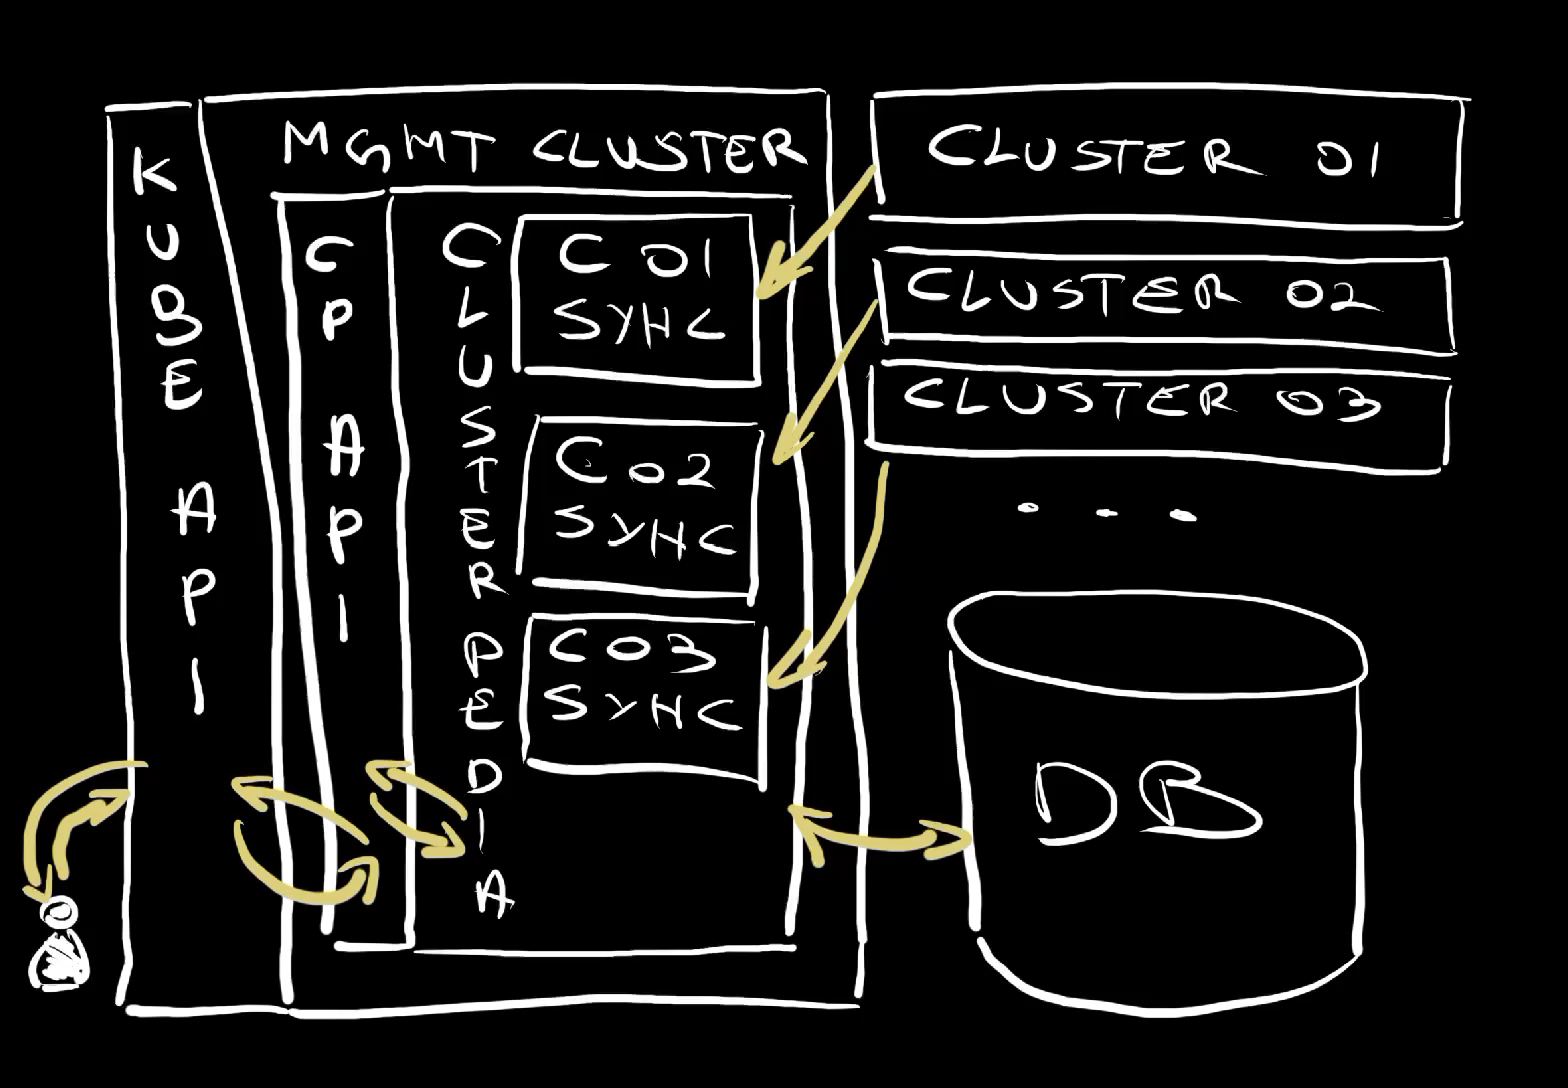 KUBE API
MGMT CLUSTER
CP API
CLUSTERPEDIA
C 01
SYNC
C 02
SYNC
C 03
SYNC
CLUSTER 01
CLUSTER 02
CLUSTER 03
...
DB